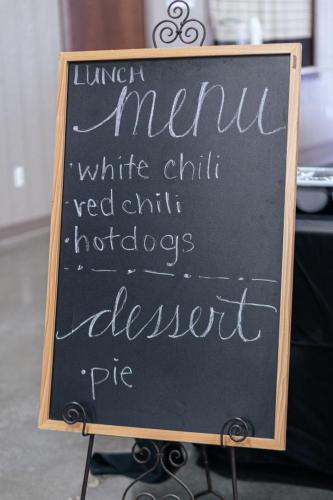 LUNCH
menu
· white chili
· red chili
· hotdogs
dessert
· pie